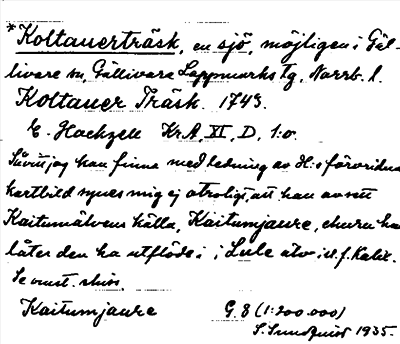 *Koltauerträsk, en sjö, möjligen i Gäl-
livare sn, Gällivare Lappmarks tg, Norrb. l.
Koltauer Träsk. 1743.
E. Hackzell KrA, XI, D, 1:o.
Såvitt jag kan finna med ledning av H:s förvridna
kartbild synes mig ej otroligt, att han avsett
Kaitumälvens källa, Kaitumjaure, churu han
låter den ha utflöde i Lule älv i st. f. Kalix.
Se omst. skiss.
Kaitumjaure G. 8 (1:200.000)
S. Sundqvist 1935.